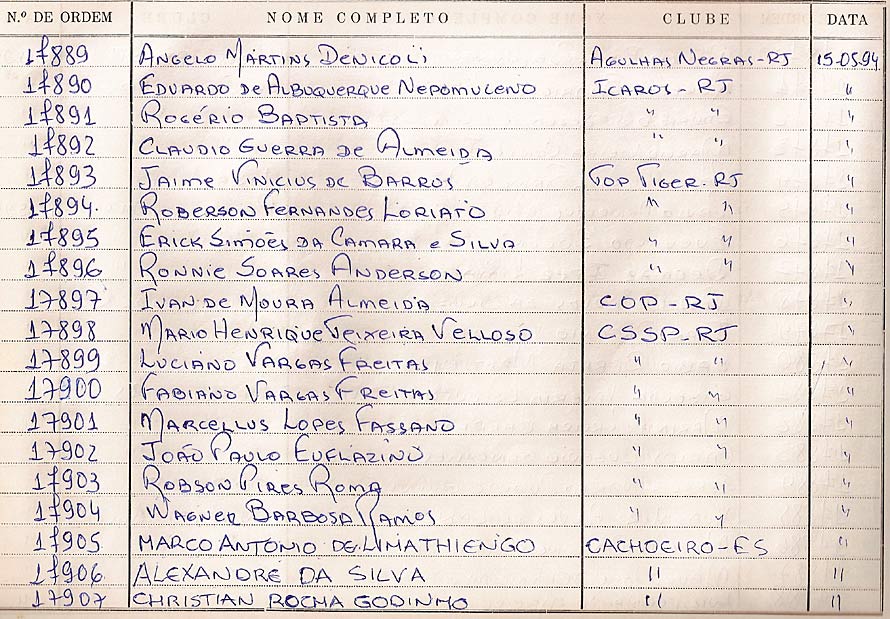 N.º DE ORDEM NOME COMPLETO CLUBE DATA
17889 ANGELO MARTINS DENICOLI AGULHAS NEGRAS-RJ 15-05.94
17890 EDUARDO DE ALBUQUERQUE NEPOMUCENO ICAROS-RJ "
17891 ROGÉRIO BAPTISTA " " "
17892 CLAUDIO GUERRA DE ALMEIDA " " "
17893 JAIME VINICIUS DE BARROS TOP TIGER.RJ "
17894. ROBERSON FERNANDES LORIATO " " "
17895 ERICK SIMÕES DA CAMARA E SILVA " " "
17896 RONNIE SOARES ANDERSON " " "
17897 IVAN DE MOURA ALMEIDA COP-RJ "
17898 MARIO HENRIQUE TEIXEIRA VELLOSO CSSP-RJ "
17899 LUCIANO VARGAS FREITAS " " "
17900 FABIANO VARGAS FREITAS " " "
17901 MARCELLUS LOPES FASSANO " " "
17902 JOÃO PAULO EUFLAZINO " " "
17903 ROBSON PIRES ROMA " " "
17904 WAGNER BARBOSA RAMOS " " "
17905 MARCO ANTONIO DE LIMA THIENGO CACHOEIRO-ES "
17906 ALEXANDRE DA SILVA " "
17907 CHRISTIAN ROCHA GODINHO " "